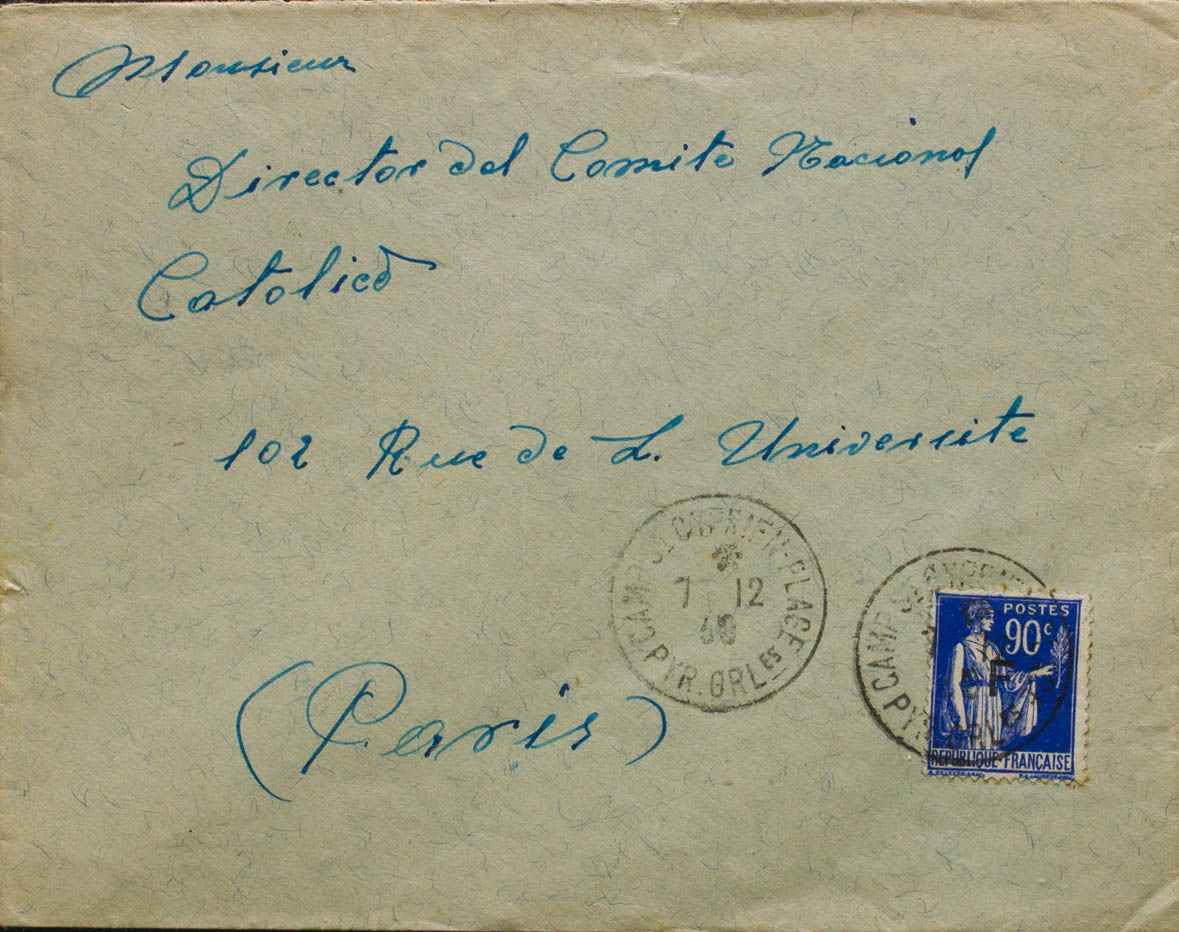 Monsieur
Director del Comite Nacional
Catolico
102 Rue de L. Universite
(Paris)
CAMP St CYPRIEN-PLAGE
7 12
PYR. ORLES
CAMP
POSTES
90c
F
REPUBLIQUE FRANÇAISE